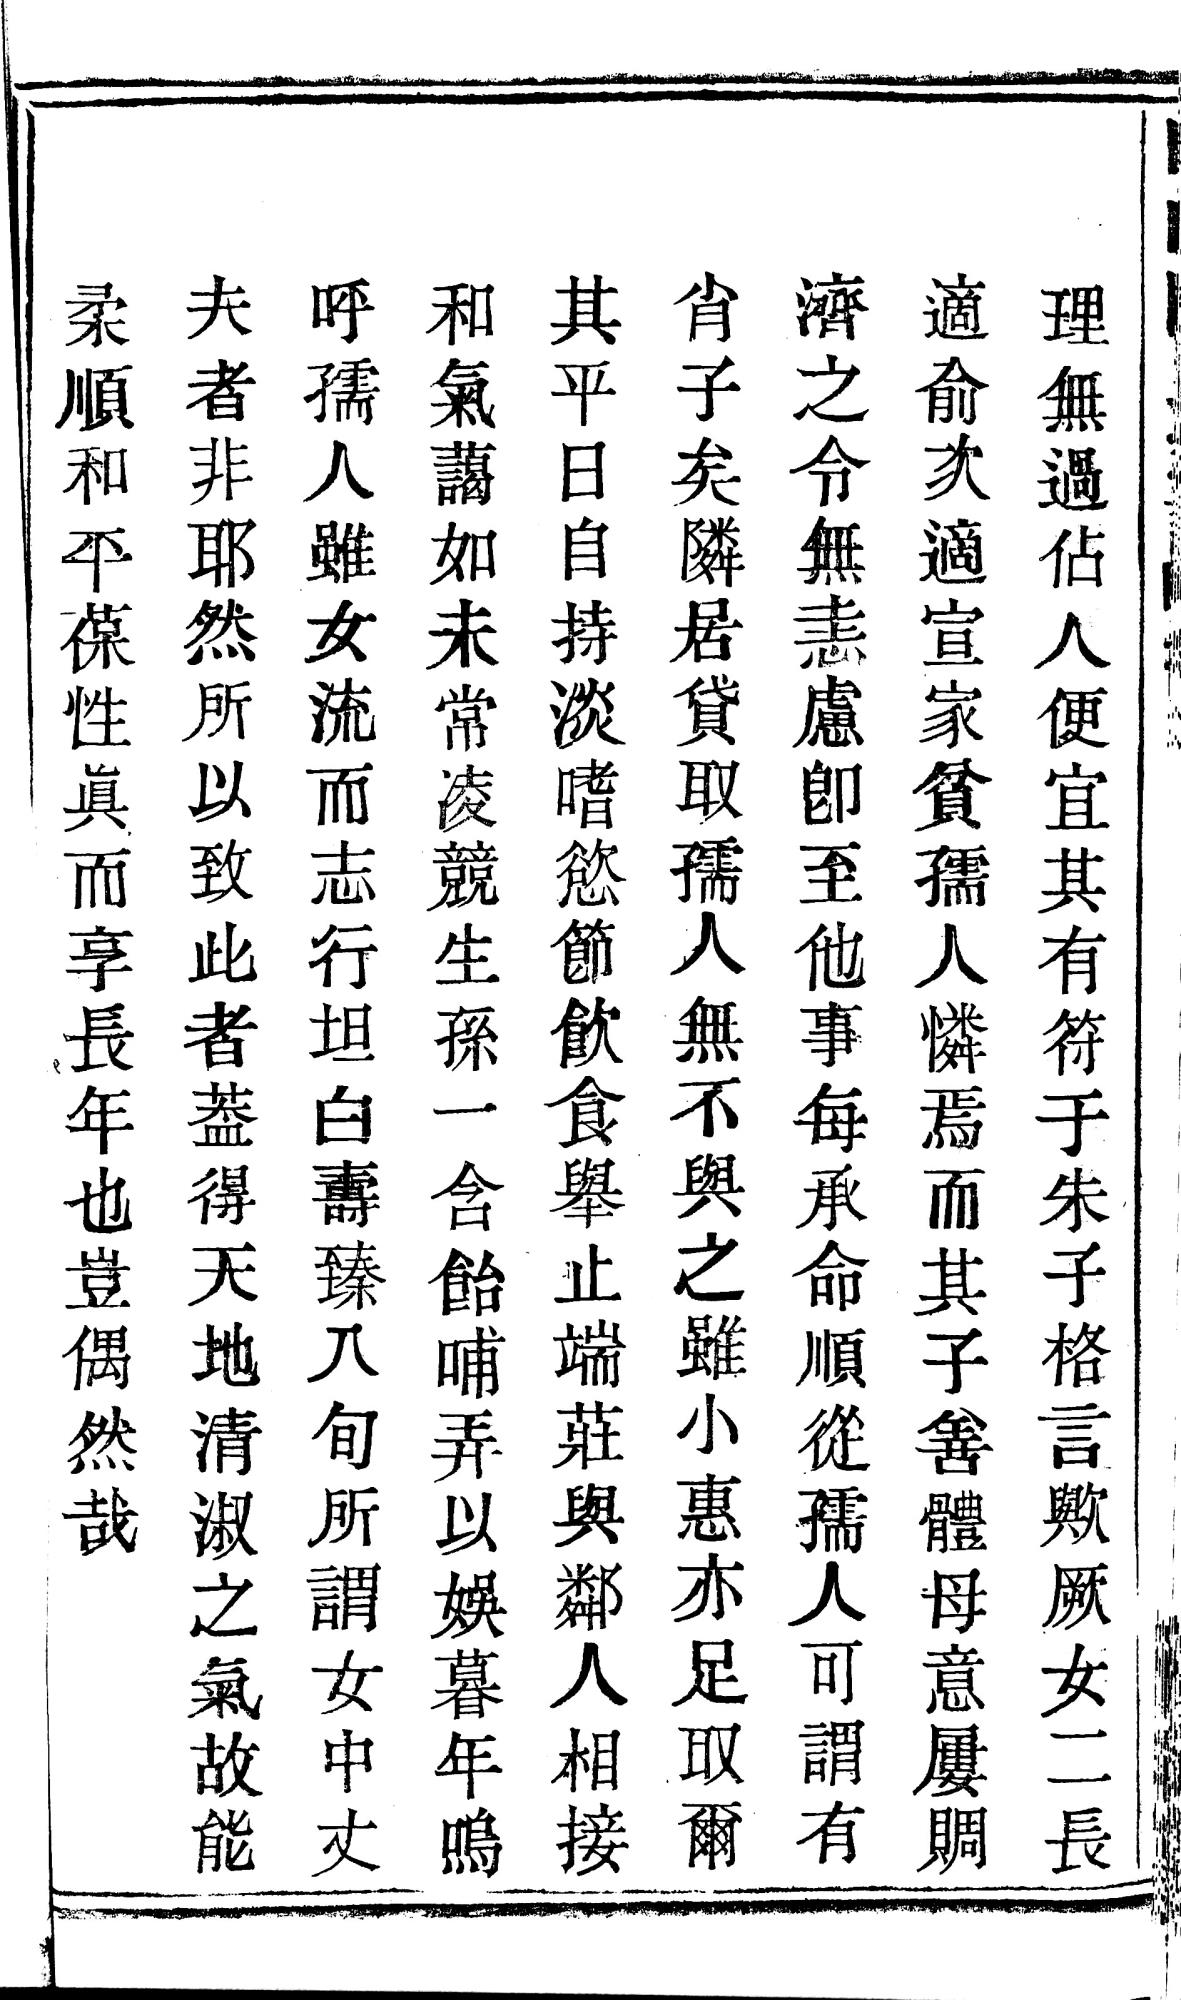 理無過佔人便宜其有符于朱子格言歟厥女二長
適俞次適宣家貧孺人憐焉而其子善體母意屢賙
濟之令無恙慮卽至他事每承命順從孺人可謂有
肖子矣隣居貸取孺人無不與之雖小惠亦足取爾
其平日自持淡嗜慾節飮食舉止端莊與鄰人相接
和氣藹如未常凌競生孫一含飴哺弄以娛暮年嗚
呼孺人雖女流而志行坦白壽臻八旬所謂女中丈
夫者非耶然所以致此者葢得天地清淑之氣故能
柔順和平葆性眞而享長年也豈偶然哉